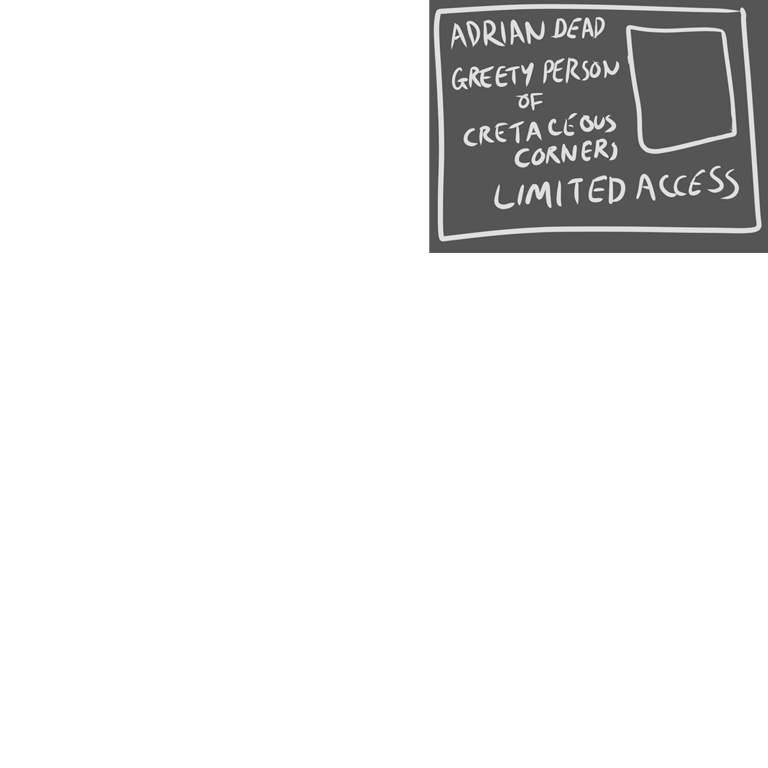 ADRIAN DEAD
GREETY PERSON
OF
CRETACEOUS
CORNER)
LIMITED ACCESS